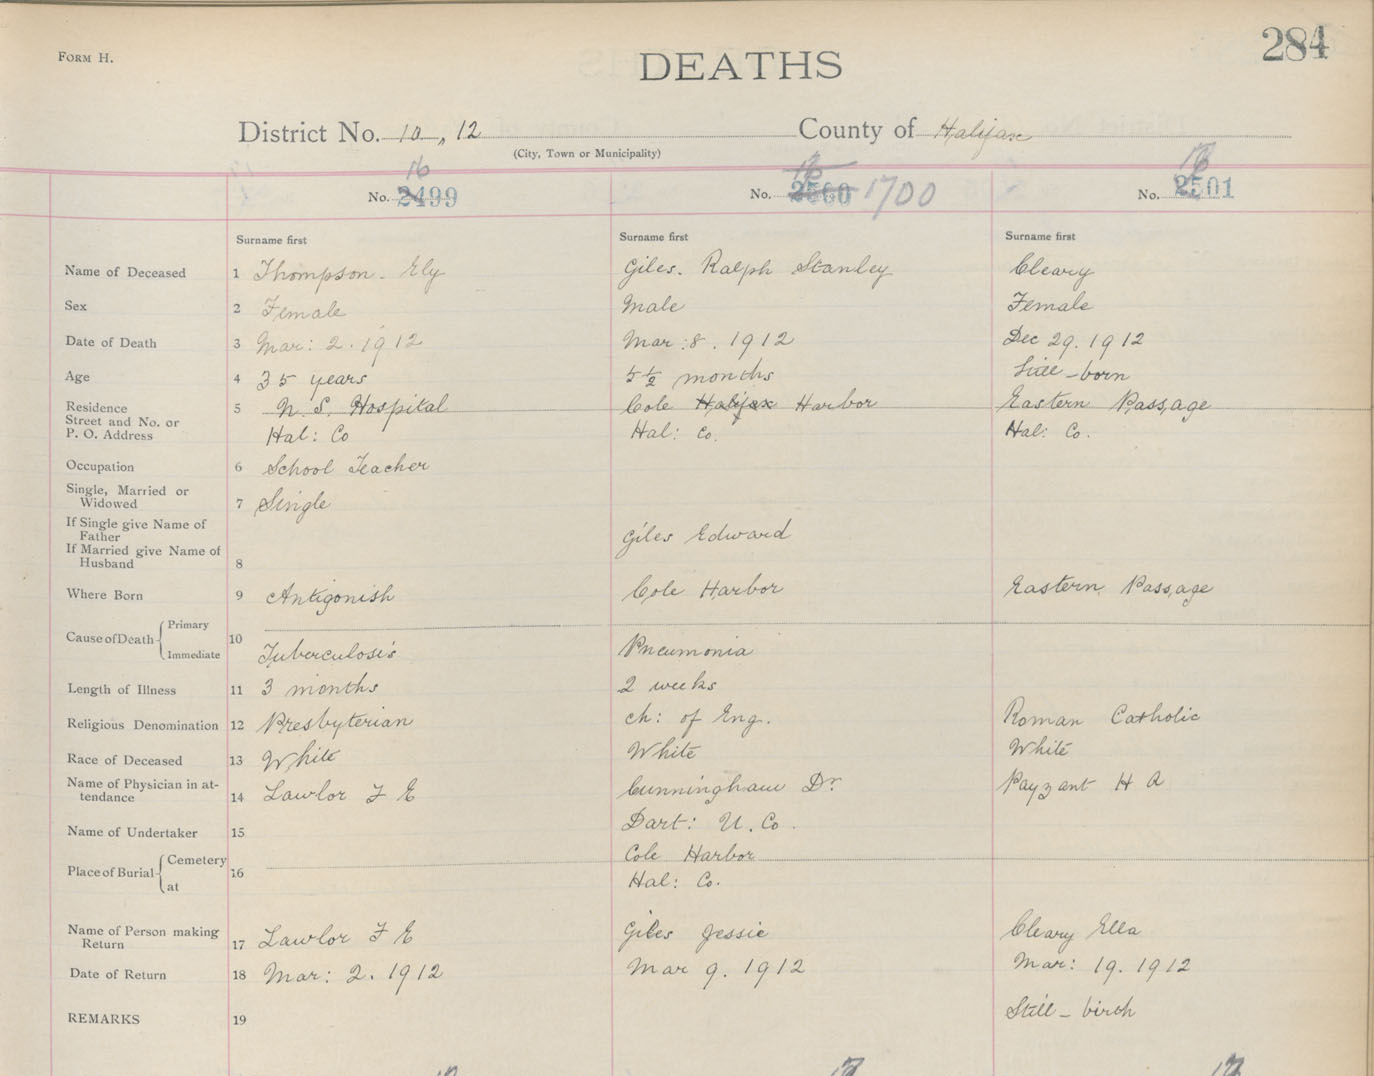 FORM H.
DEATHS
284
District No. 10, 12 County of Halifax
(City, Town or Municipality)
16
No. 2499
16
No. 2500 1700
No. 2501
Surname first
Surname first
Surname first
Name of Deceased 1 Thompson. Ely
Giles. Ralph Stanley
Cleary
Sex 2 Female
Male
Female
Date of Death 3 Mar: 2. 1912
Mar: 8. 1912
Dec 29. 1912
Age 4 35 years
5½ months
Still-born
Residence
Street and No. or
P. O. Address
5 N. S. Hospital
Hal: Co
Cole Halifax Harbor
Hal: Co.
Eastern Passage
Hal: Co.
Occupation 6 School Teacher
Single, Married or
Widowed 7 Single
If Single give Name of
Father
If Married give Name of
Husband 8
Giles Edward
Where Born 9 Antigonish
Cole Harbor
Eastern Passage
Cause of Death Primary
Immediate 10
Tuberculosis
Pneumonia
Length of Illness 11 3 months
2 weeks
Religious Denomination 12 Presbyterian
Ch: of Eng.
Roman Catholic
Race of Deceased 13 White
White
White
Name of Physician in at-
tendance 14 Lawlor F E
Cunningham Dr.
Payzant H A
Name of Undertaker 15
Dart: U. Co.
Place of Burial Cemetery
at 16
Cole Harbor
Hal: Co.
Name of Person making
Return 17 Lawlor F E
Giles Jessie
Cleary Ella
Date of Return 18 Mar: 2. 1912
Mar 9. 1912
Mar: 19. 1912
REMARKS 19
Still-birth